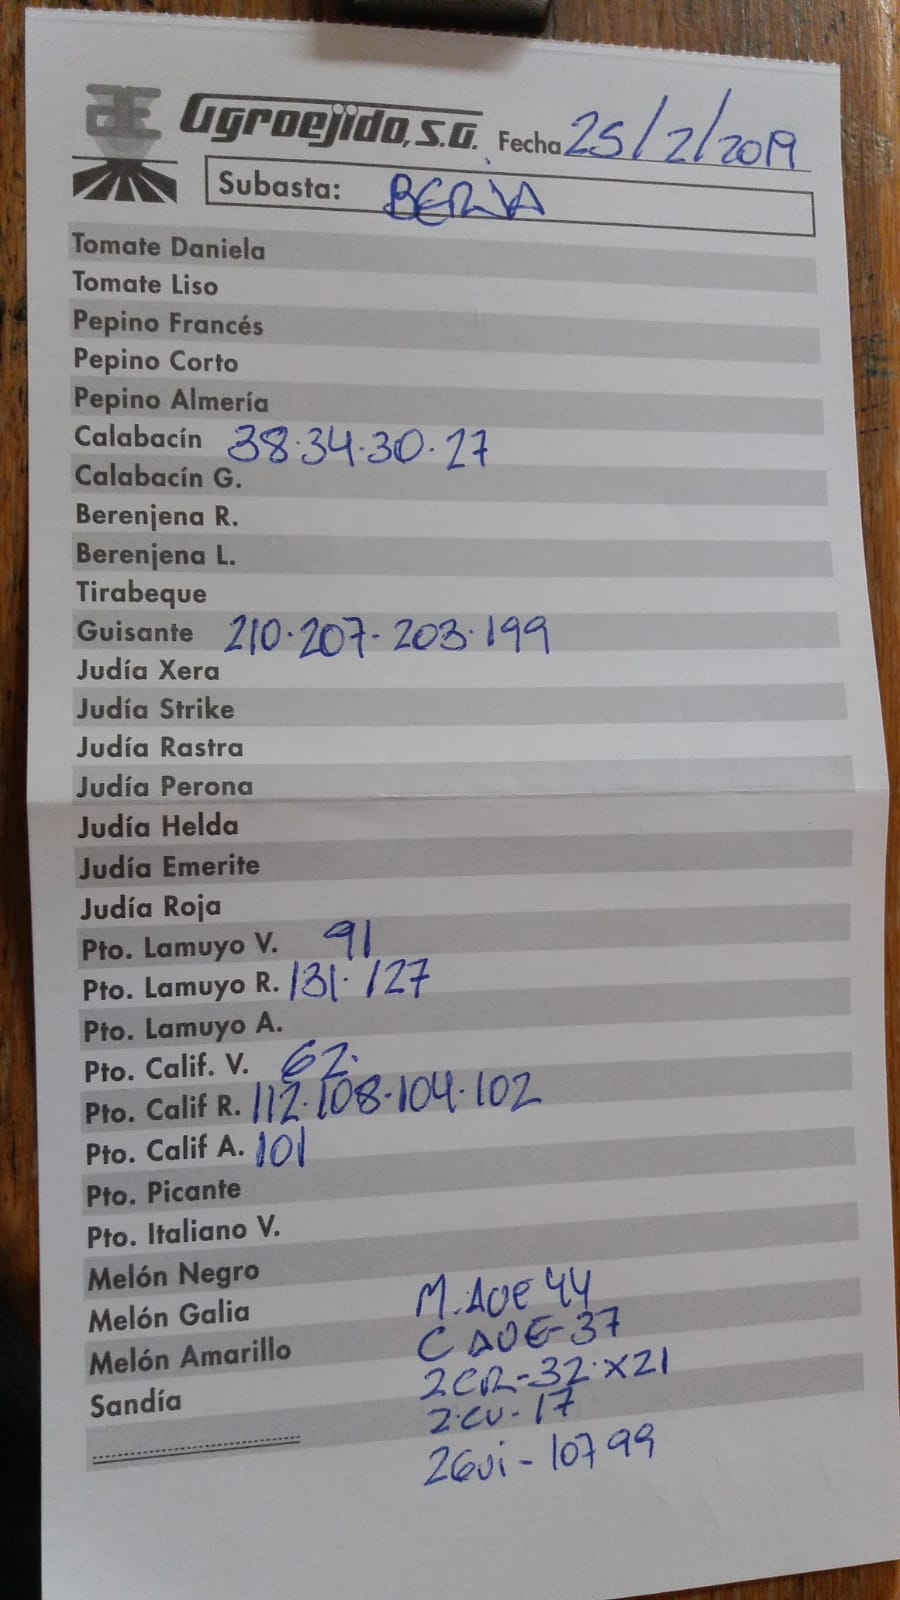 Agroejido, S.A. Fecha 25/2/2019
Subasta: BERJA
Tomate Daniela
Tomate Liso
Pepino Francés
Pepino Corto
Pepino Almería
Calabacín 38·34·30·27
Calabacín G.
Berenjena R.
Berenjena L.
Tirabeque
Guisante 210·207·203·199
Judía Xera
Judía Strike
Judía Rastra
Judía Perona
Judía Helda
Judía Emerite
Judía Roja
Pto. Lamuyo V. 91
Pto. Lamuyo R. 131·127
Pto. Lamuyo A.
Pto. Calif. V. 62·
Pto. Calif R. 112·108·104·102
Pto. Calif A. 101
Pto. Picante
Pto. Italiano V.
Melón Negro
Melón Galia M. AOE 44
Melón Amarillo C AOE-37
Sandía 2CR-32·X21
2·CV-17
2Gui-107 99